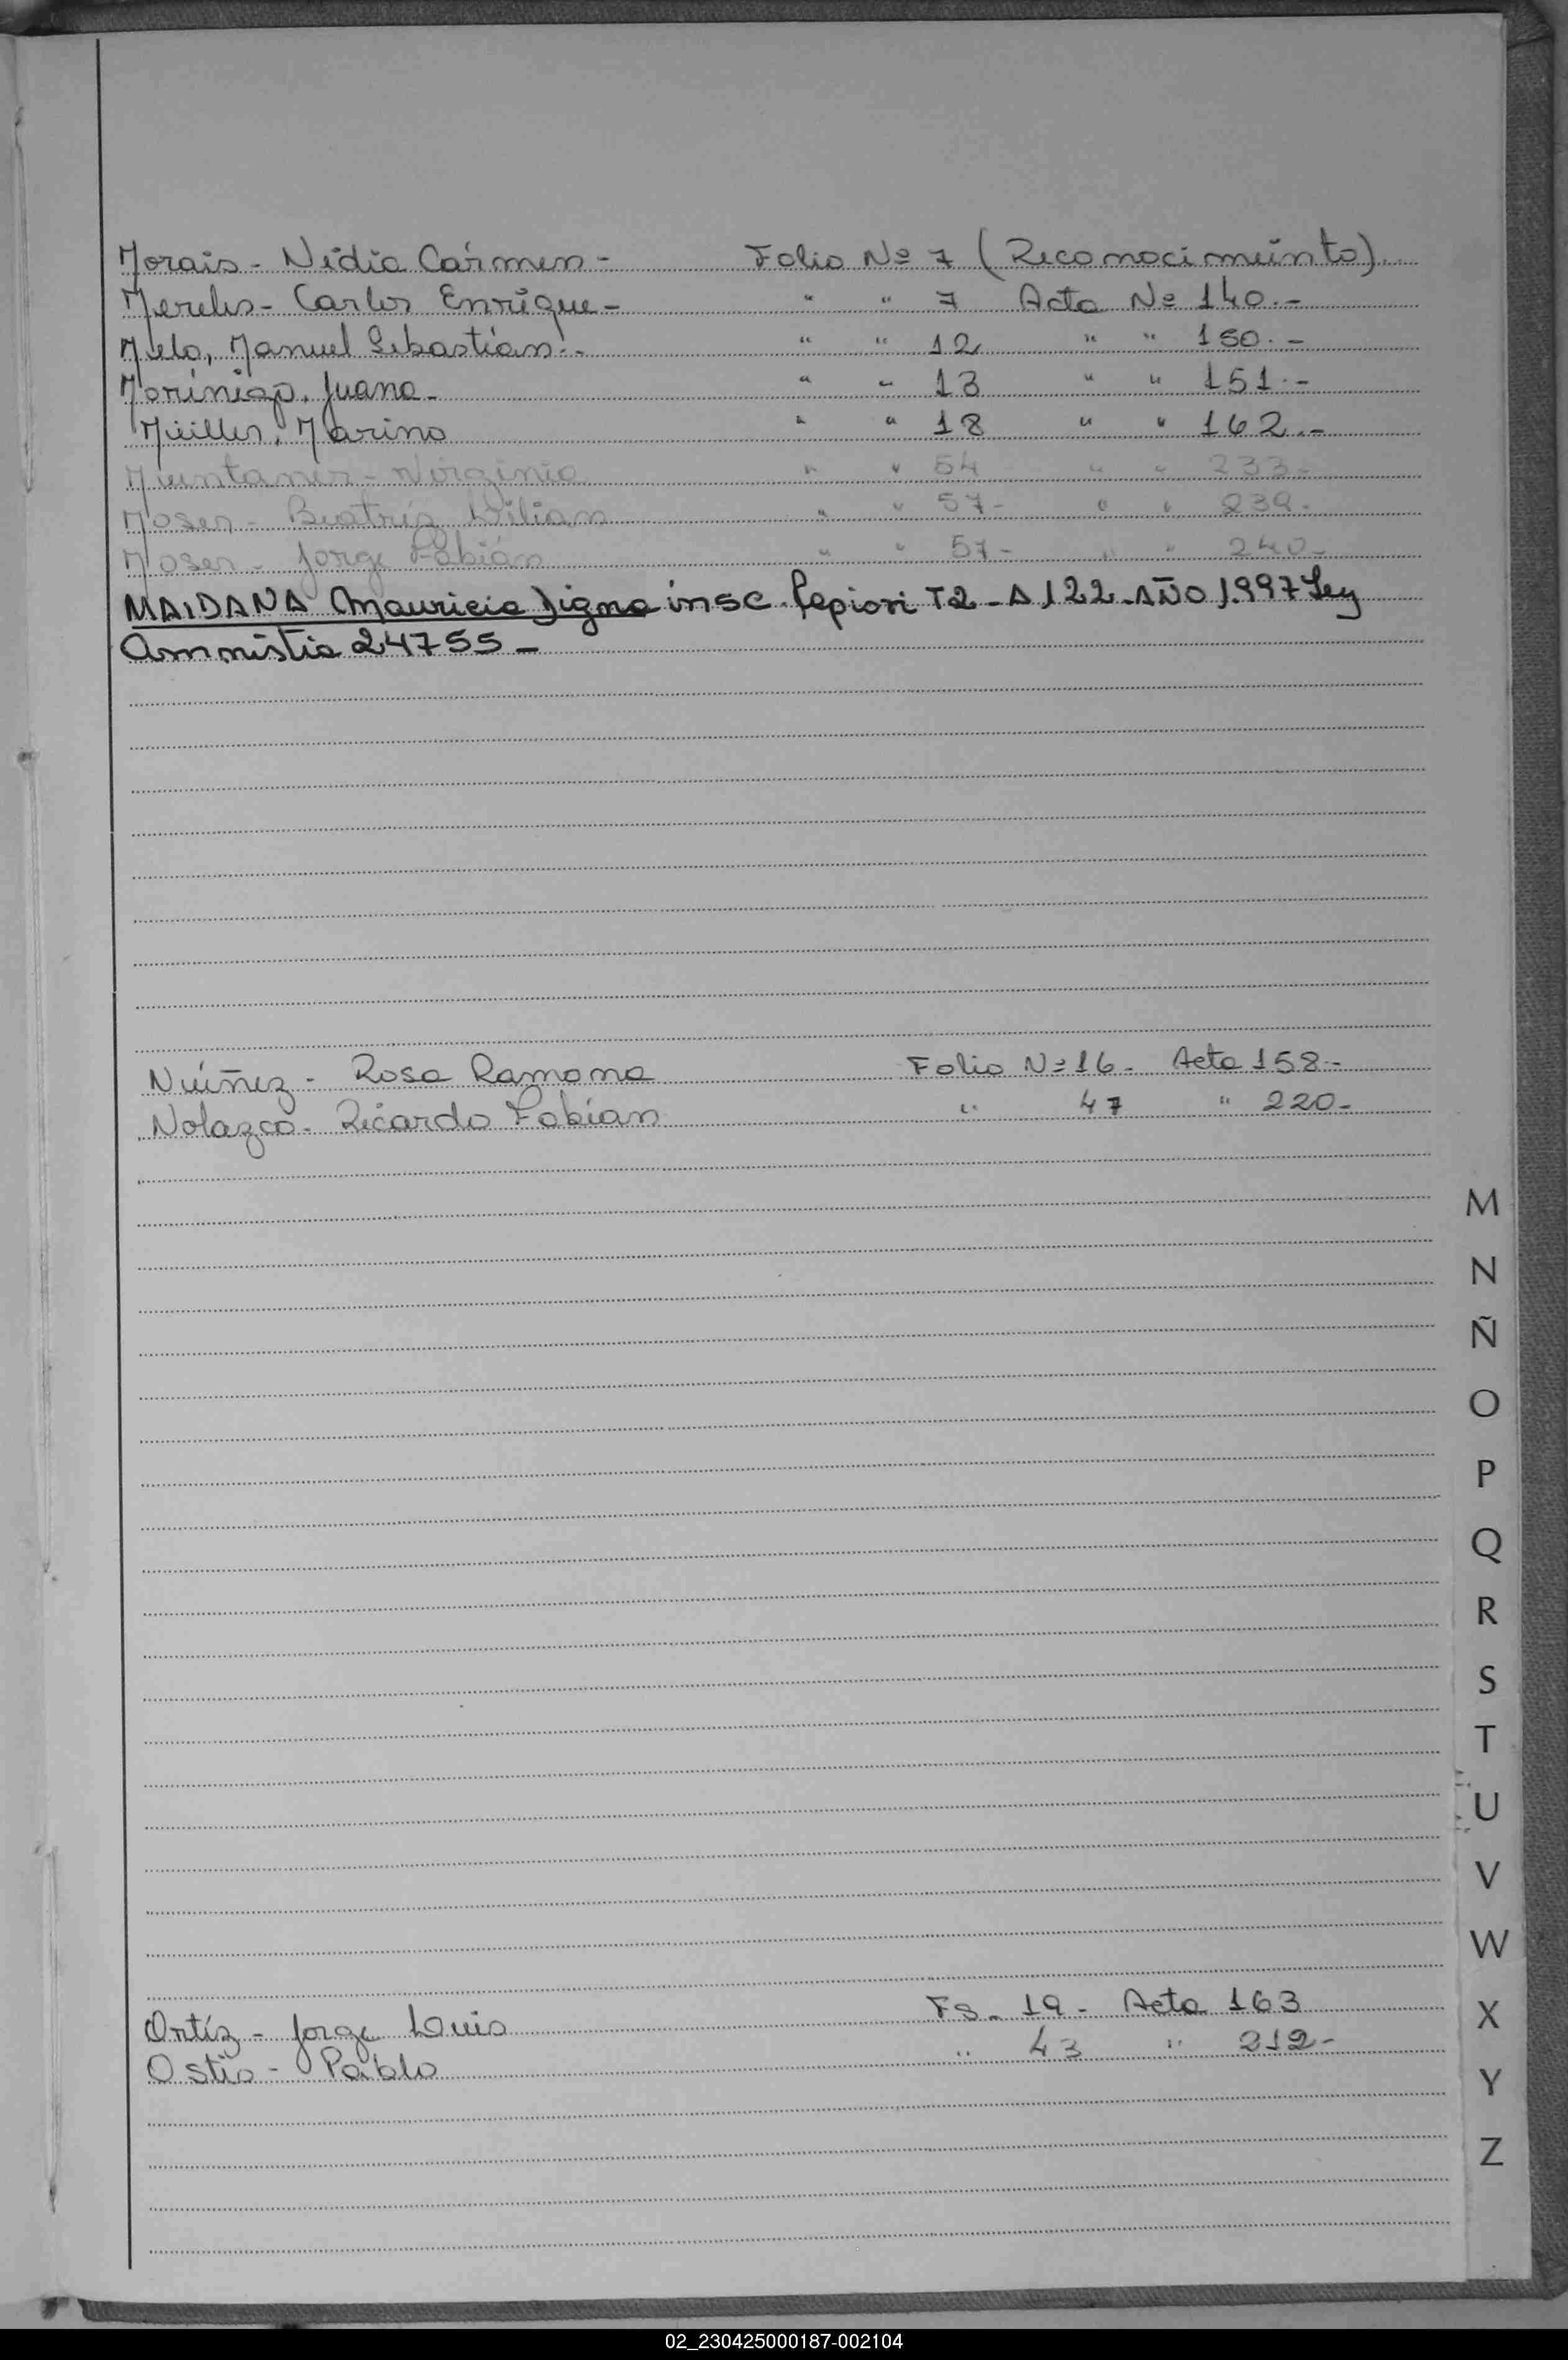 Morais - Nidia Cármen - Folio Nº 7 (Reconocimeinto)
Mereles - Carlos Enrique - " " 7 Acta Nº 140.-
Melo, Manuel Sebastián.- " " 12 " " 150.-
Morínigo, Juana - " " 13 " " 151.-
Müiller, Marino " " 18 " " 162.-
Muntaner - Virginia " " 54 " " 233-
Moser - Beatríz Lilian " " 57- " " 239-
Moser - Jorge Fabián " " 57- " " 240-
MAIDANA Mauricia Digna insc. Papiori T2 - A 122 - AÑO 1.997 Ley
Amnistia 24755 -
Núñez - Rosa Ramona Folio Nº 16 - Acta 158-
Nolazco - Ricardo Fabián " 47 " 220-
Ortíz - Jorge Luis Fs. 19 - Acta 163
Ostis - Pablo " 43 " 212-
M
N
Ñ
O
P
Q
R
S
T
U
V
W
X
Y
Z
02_230425000187-002104